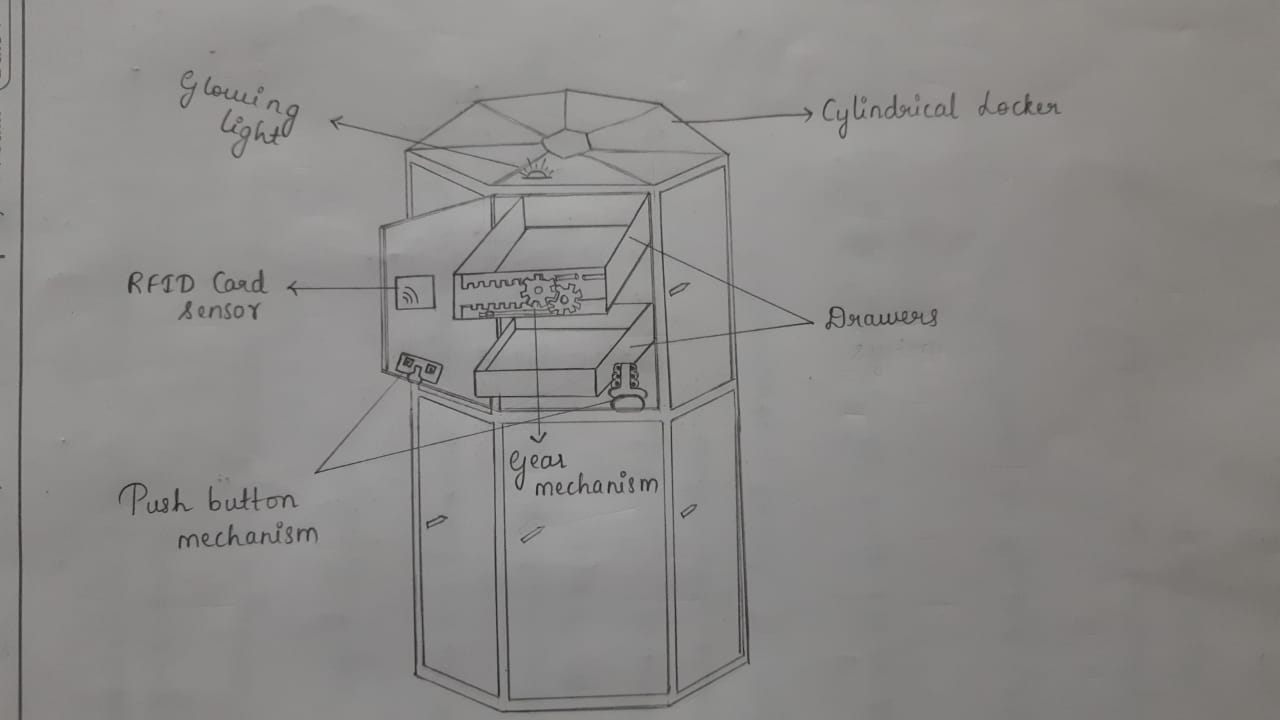 Glowing
light
Cylindrical Locker
RFID Card
Sensor
Drawers
Gear
mechanism
Push button
mechanism